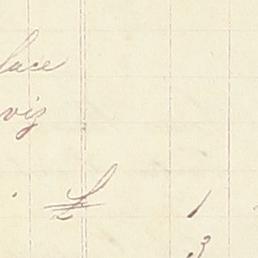 lace
viz
£ 1
3